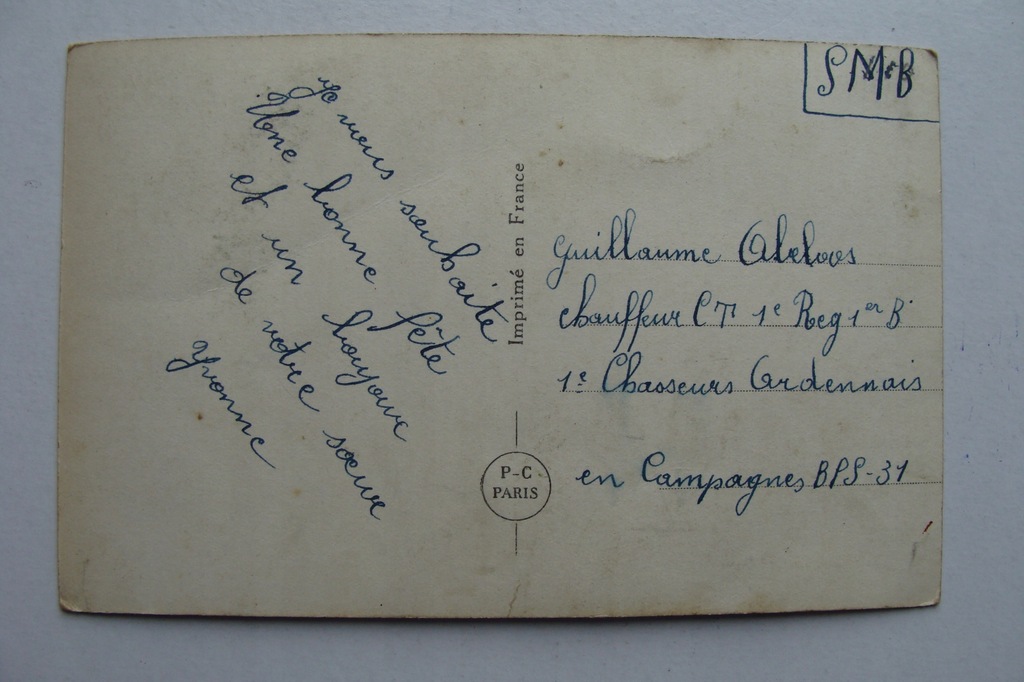 Je vous souhaite
Une bonne fête
et un bonjour
de votre sœur
Yvonne
Imprimé en France
P-C
PARIS
SM B
Guillaume Abeloos
chauffeur CT 1e Reg 1er B
1e Chasseurs Ardennais
en Campagnes BPS-31